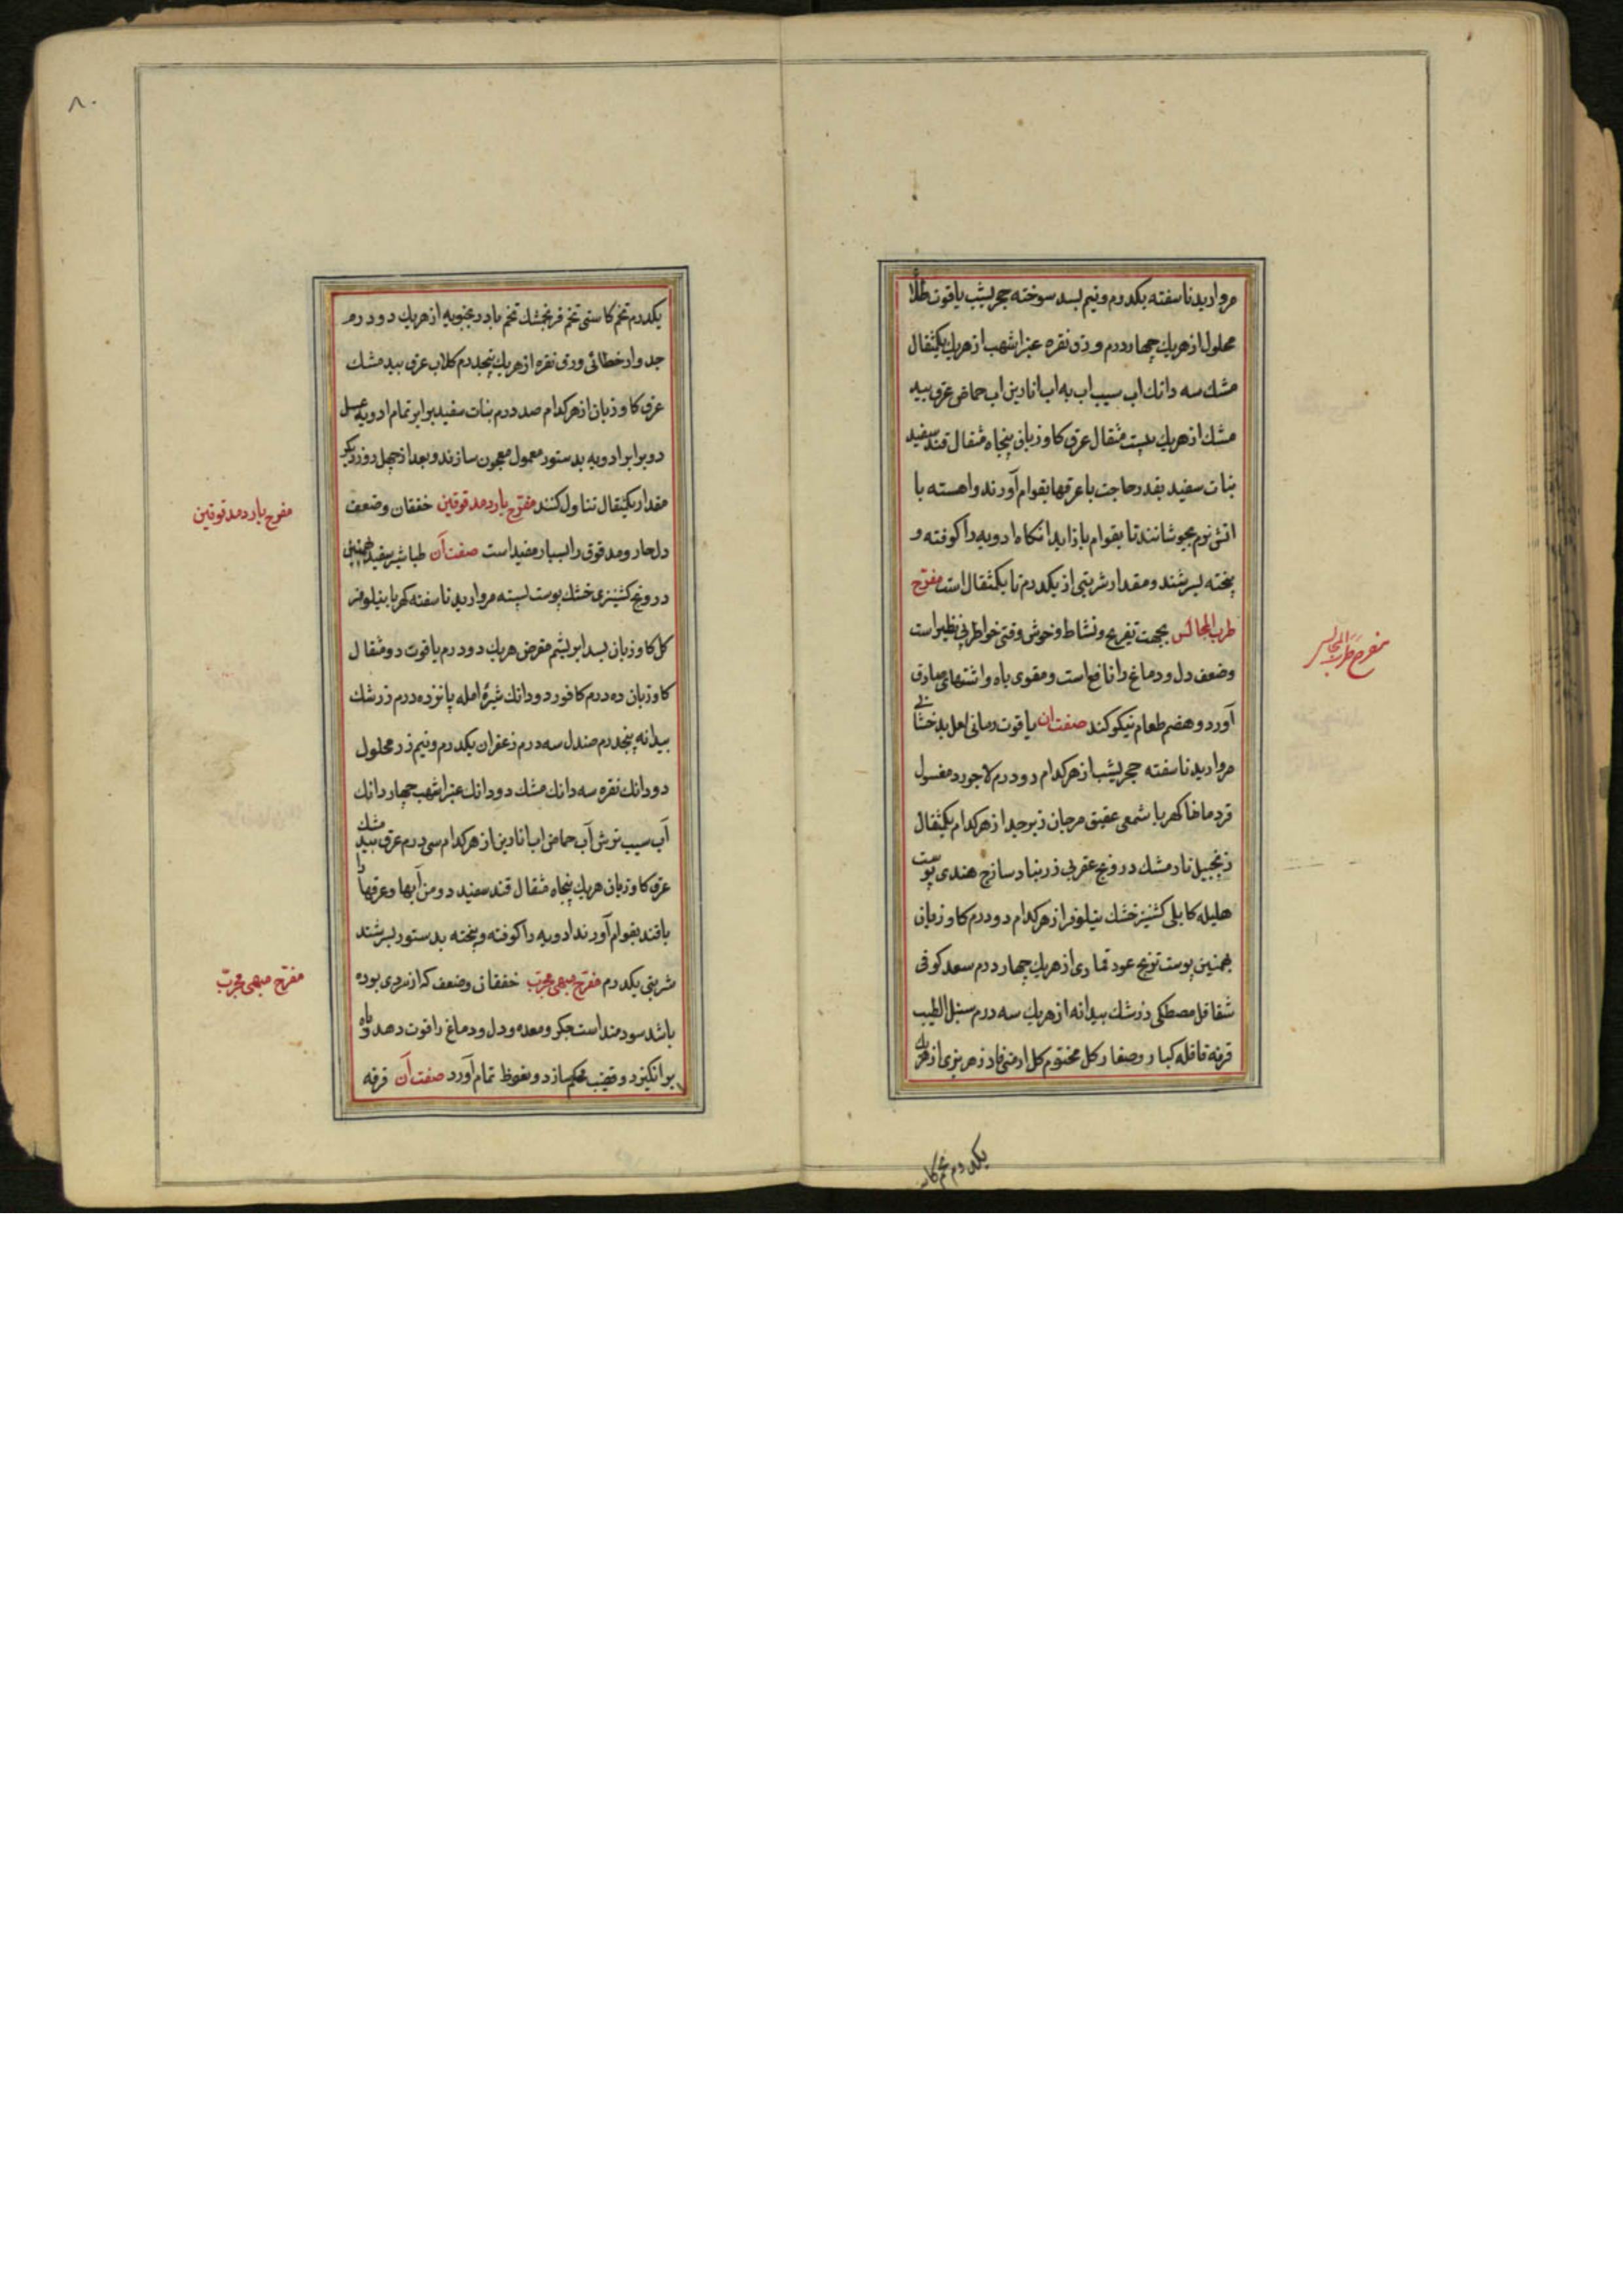 مروارید ناسفته یکدرم ونیم بسد سوخته حجر یشب یاقوت طلا
محلول ازهریك چهاردرم ورق نقره عنبر اشهب ازهریك یکمثقال
مشك سه دانك اب سیب اب به اب انارین اب حماض عرق بید
مشك ازهریك بیست مثقال عرق کاوزبان پنجاه مثقال قند سفید
نبات سفید بقدر حاجت با عرقها بقوام آورند واهسته با
اتش نرم بجوشانند تا بقوام بازاید انکاه ادویه را کوفته و
پخته بسرشند ومقدار شربتی از یکدرم تا یکمثقال است مفرح
طرب المجالس بجهت تفریح ونشاط وخوش وقتی خواطر بی نظیر است
وضعف دل ودماغ را نافع است ومقوی باه واشتهای صادق
آورد وهضم طعام نیکو کند صفت ان یاقوت رمانی لعل بدخشانی
مروارید ناسفته حجر یشب ازهرکدام دودرم لاجورد مغسول
قردمانا کهربا شمعی عقیق مرجان زبرجد ازهرکدام یکمثقال
زنجبیل نارمشك درونج عقربی زرنباد سازج هندی پوست
هلیله کابلی کشنیز خشك نیلوفر ازهرکدام دودرم کاوزبان
بهمنین پوست ترنج عود قماری ازهریك چهاردرم سعد کوفی
شقاقل مصطکی زرشك بیدانه ازهریك سه درم سنبل الطیب
قرفه قاقله کبار وصغار کل مختوم کل ارمنی فادزهر بزی ازهریك
مفرح طرب المجالس
یکدرم تخم کاس
۸۰
یکدرم تخم کاسنی تخم فرنجمشك تخم بادرنجبویه ازهریك دودرم
جدوار خطائی ورق نقره ازهریك پنجدرم کلاب عرق بید مشك
عرق کاوزبان ازهرکدام صددرم نبات سفید برابر تمام ادویه عسل
دوبرابر ادویه بدستور معمول معجون سازند وبعد از چهل روز دیکر
مقدار یکمثقال تناول کنند مفرح بارد مدقوقین خفقان وضعف
دل حار ومدقوق را بسیار مفید است صفت آن طباشیر سفید بهمنین
درونج کشنیزی خشك پوست پسته مروارید ناسفته کهربا نیلوفر
کل کاوزبان بسد ابریشم مقرض هریك دودرم یاقوت دومثقال
کاوزبان ده درم کافور دودانك شیرهٔ امله پانزده درم زرشك
بیدانه پنجدرم صندل سه درم زعفران یکدرم ونیم زر محلول
دودانك نقره سه دانك مشك دودانك عنبر اشهب چهاردانك
آب سیب ترش آب حماض اب انارین ازهرکدام سی درم عرق بید مشك
عرق کاوزبان هریك پنجاه مثقال قند سفید دومن آبها وعرقها را
باقند بقوام آورند ادویه را کوفته وپخته بدستور بسرشند
شربتی یکدرم مفرح مبهی مجرب خفقان وضعف که از سردی بوده
باشد سودمند است جکر ومعده ودل ودماغ را قوت دهد وباه
برانکیزد وقضیب محکم سازد ونعوظ تمام آورد صفت آن قرفه
مفرح بارد مدقوقین
مفرح مبهی مجرب